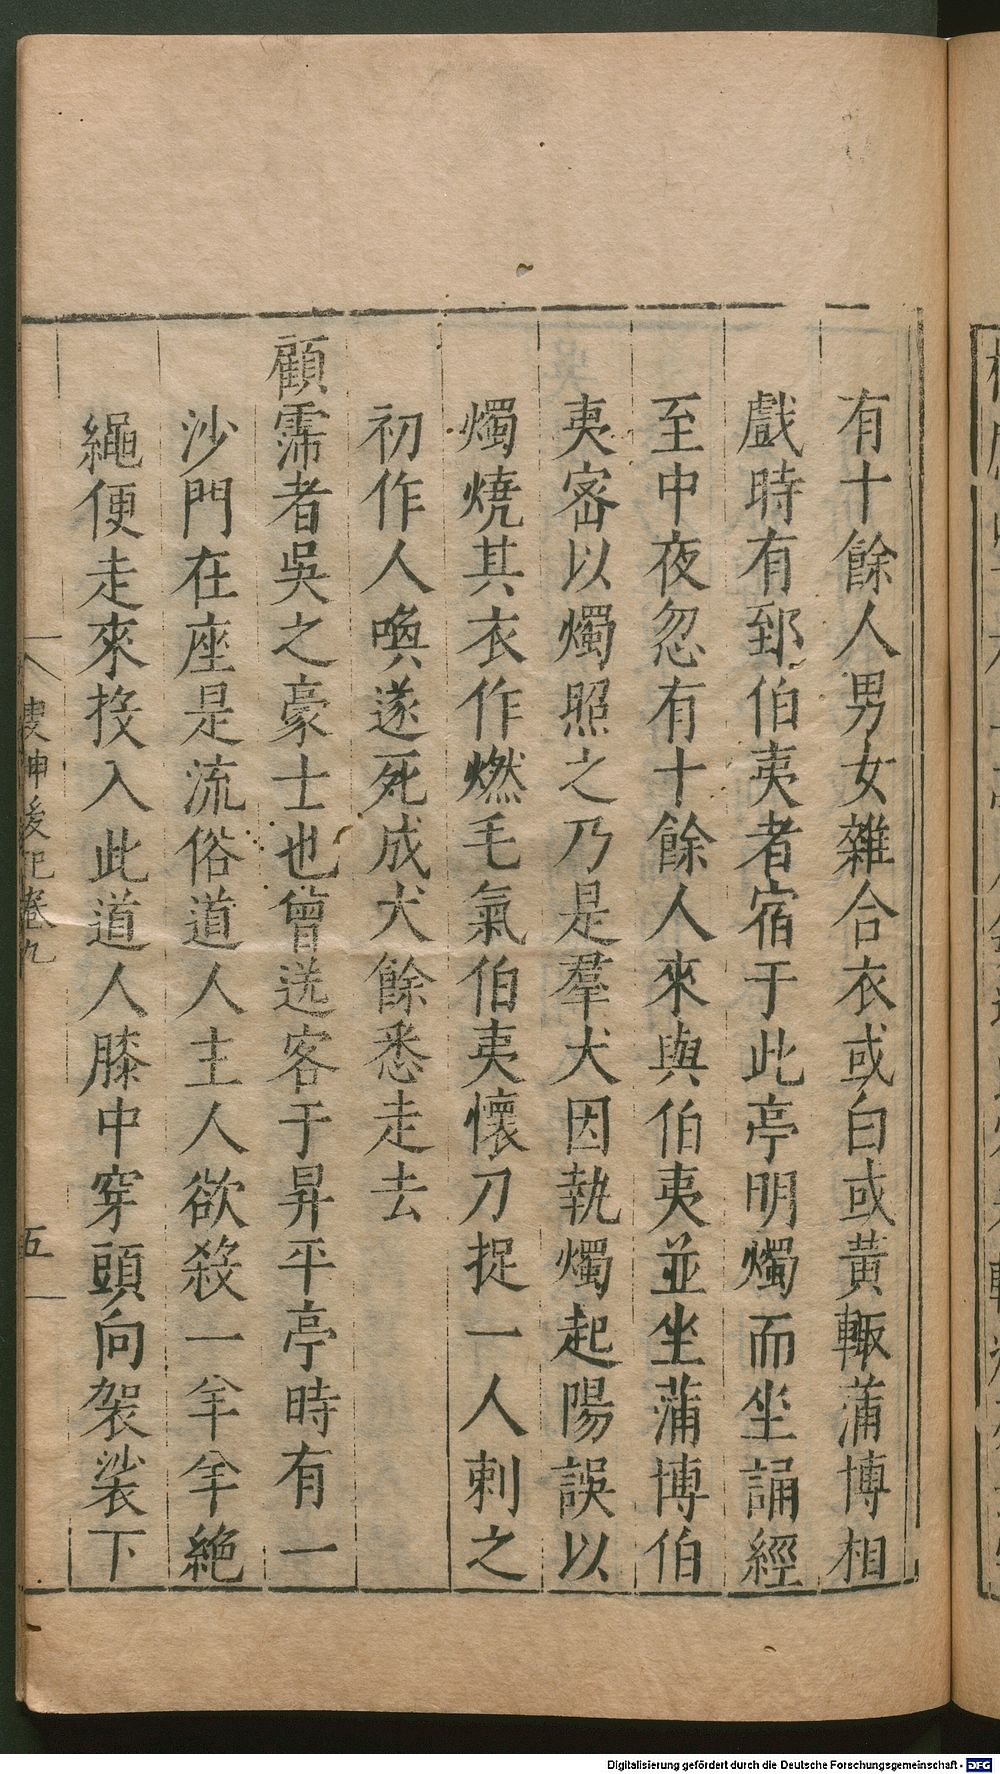 有十餘人男女雜合衣或白或黃輙蒲博相
戲時有郅伯夷者宿于此亭明燭而坐誦經
至中夜忽有十餘人來與伯夷並坐蒲博伯
夷宻以燭照之乃是羣犬因執燭起陽誤以
燭燒其衣作燃毛氣伯夷懷刀捉一人刺之
初作人喚遂死成犬餘悉走去
顧霈者吳之豪士也曾送客于昇平亭時有一
沙門在座是流俗道人主人欲殺一羊羊絶
繩便走來投入此道人膝中穿頭向袈裟下
搜神後記卷九
五
Digitalisierung gefördert durch die Deutsche Forschungsgemeinschaft - DFG